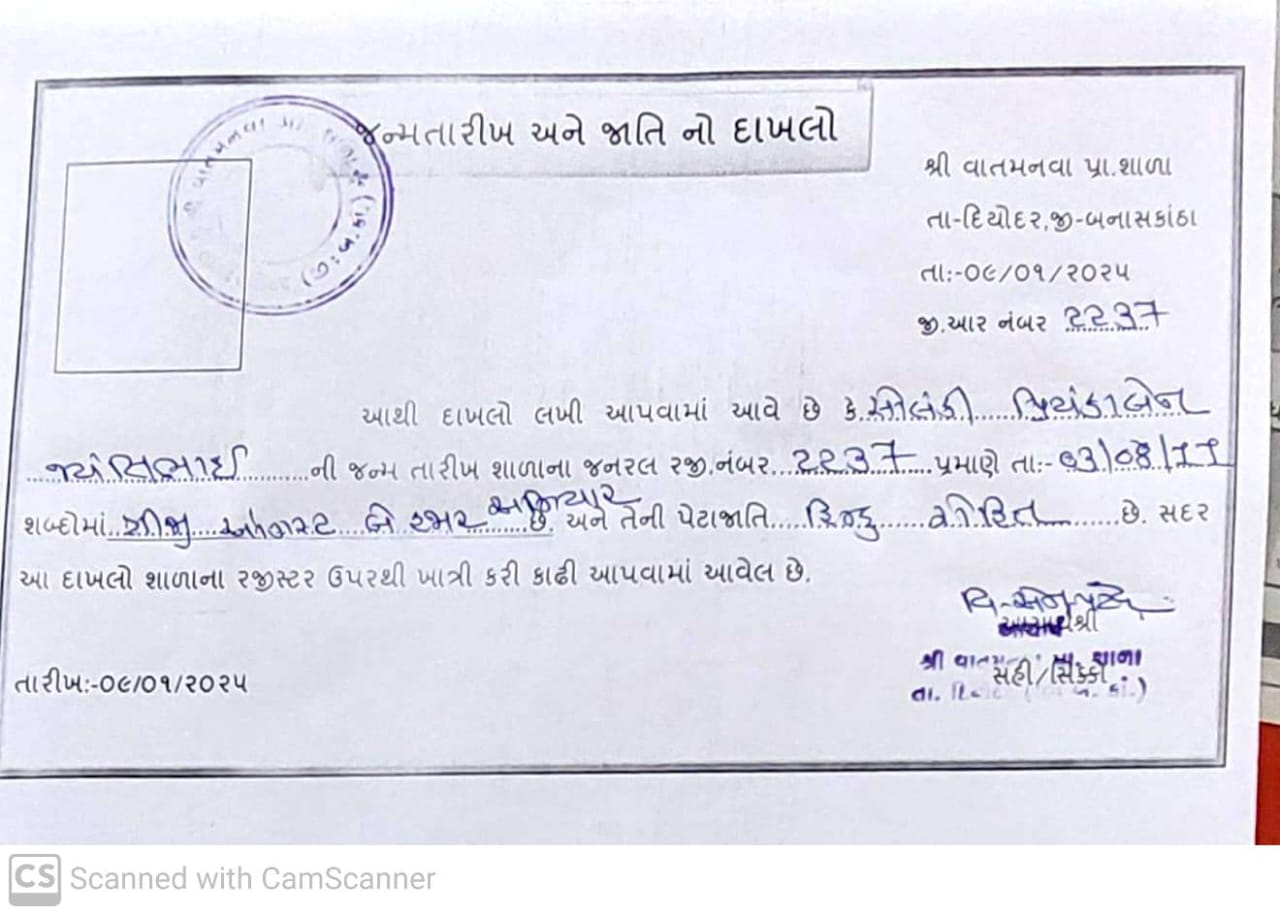 જન્મતારીખ અને જાતિ નો દાખલો
શ્રી વાતમનવા પ્રા.શાળા
તા-દિયોદર,જી-બનાસકાંઠા
તા:-૦૯/૦૧/૨૦૨૫
જી.આર નંબર 2237
આથી દાખલો લખી આપવામાં આવે છે કે સોલંકી પ્રિયંકાબેન
ની જન્મ તારીખ શાળાના જનરલ રજી.નંબર 2237 પ્રમાણે તા:- 03/08/11
શબ્દોમાં ત્રીજી ઓગસ્ટ બે હજાર અગિયાર છે અને તેની પેટાજાતિ હિન્દુ છે. સદર
આ દાખલો શાળાના રજીસ્ટર ઉપરથી ખાત્રી કરી કાઢી આપવામાં આવેલ છે.
આચાર્યશ્રી
સહી/સિક્કો
તારીખ:-૦૯/૦૧/૨૦૨૫
CS Scanned with CamScanner